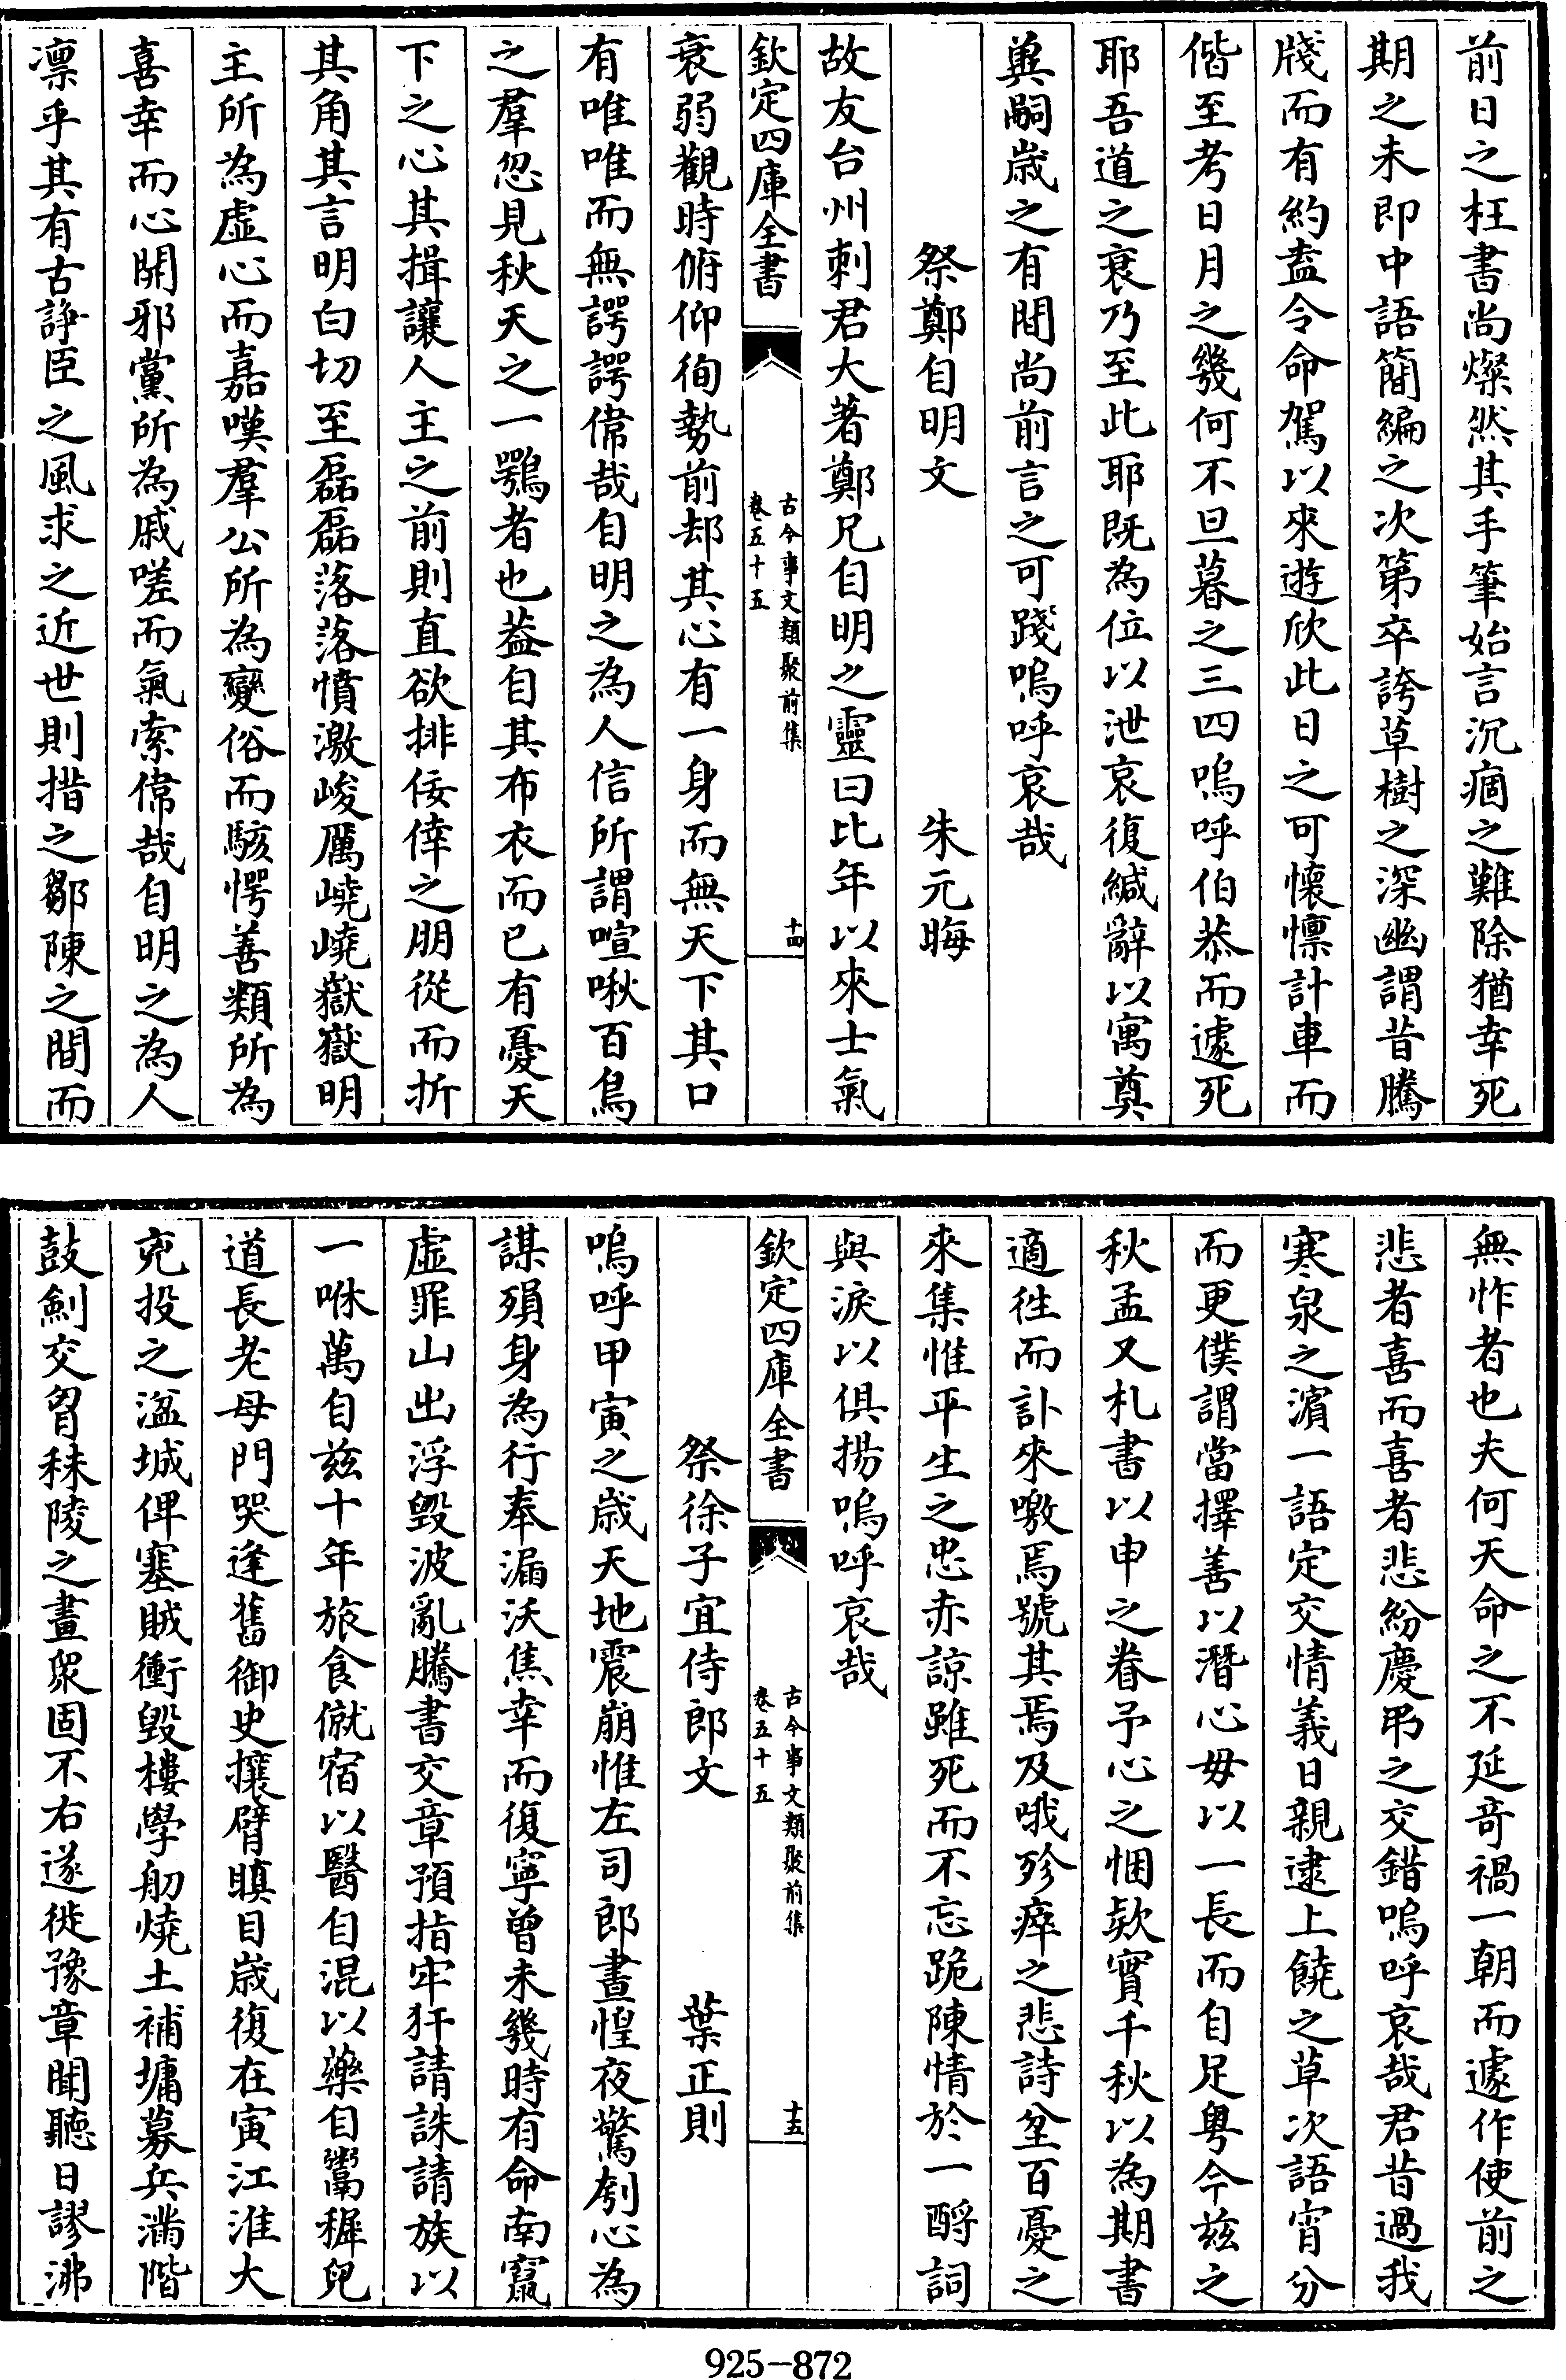 前日之枉書尚燦然其手筆始言沉痼之難除猶幸死
期之未即中語簡編之次第卒誇草樹之深幽謂昔騰
牋而有約盍今命駕以來遊欣此日之可懷懔計車而
偕至考日月之幾何不旦暮之三四嗚呼伯恭而遽死
耶吾道之衰乃至此耶既為位以泄哀復緘辭以寓奠
兾嗣歳之有間尚前言之可踐嗚呼哀哉
祭鄭自明文　朱元晦
故友台州刺君大著鄭兄自明之靈曰比年以來士氣
欽定四庫全書
古今事文類聚前集
卷五十五
十四
衰弱觀時俯仰徇勢前却其心有一身而無天下其口
有唯唯而無諤諤偉哉自明之為人信所謂喧啾百鳥
之羣忽見秋天之一鶚者也葢自其布衣而已有憂天
下之心其揖讓人主之前則直欲排佞倖之朋從而折
其角其言明白切至磊磊落落憤激峻厲嶢嶢嶽嶽明
主所為虛心而嘉嘆羣公所為變俗而駭愕善類所為
喜幸而心開邪黨所為戚嗟而氣索偉哉自明之為人
凛乎其有古諍臣之風求之近世則措之鄒陳之間而
無怍者也夫何天命之不延奇禍一朝而遽作使前之
悲者喜而喜者悲紛慶弔之交錯嗚呼哀哉君昔過我
寒泉之濵一語定交情義日親逮上饒之草次語宵分
而更僕謂當擇善以潛心毋以一長而自足粤今兹之
秋孟又札書以申之眷予心之悃欵實千秋以為期書
適徃而訃來噭焉號其焉及哦殄瘁之悲詩坌百憂之
來集惟平生之忠赤諒雖死而不忘跪陳情於一酹詞
與淚以俱揚嗚呼哀哉
欽定四庫全書
古今事文類聚前集
卷五十五
十五
祭徐子宜侍郎文　葉正則
嗚呼甲寅之歳天地震崩惟左司郎晝惶夜驚刳心為
謀殞身為行奉漏沃焦幸而復寧曾未幾時有命南竄
虛罪山出浮毀波亂騰書交章預指牢犴請誅請族以
一咻萬自兹十年旅食僦宿以醫自混以藥自鬻穉兒
道長老母門哭逢舊御史攘臂瞋目歳復在寅江淮大
兇投之湓城俾塞賊衝毀樓學舠燒土補墉募兵滿階
鼓劍交胷秣陵之畫衆固不右遂徙豫章聞聽日謬沸
925-872